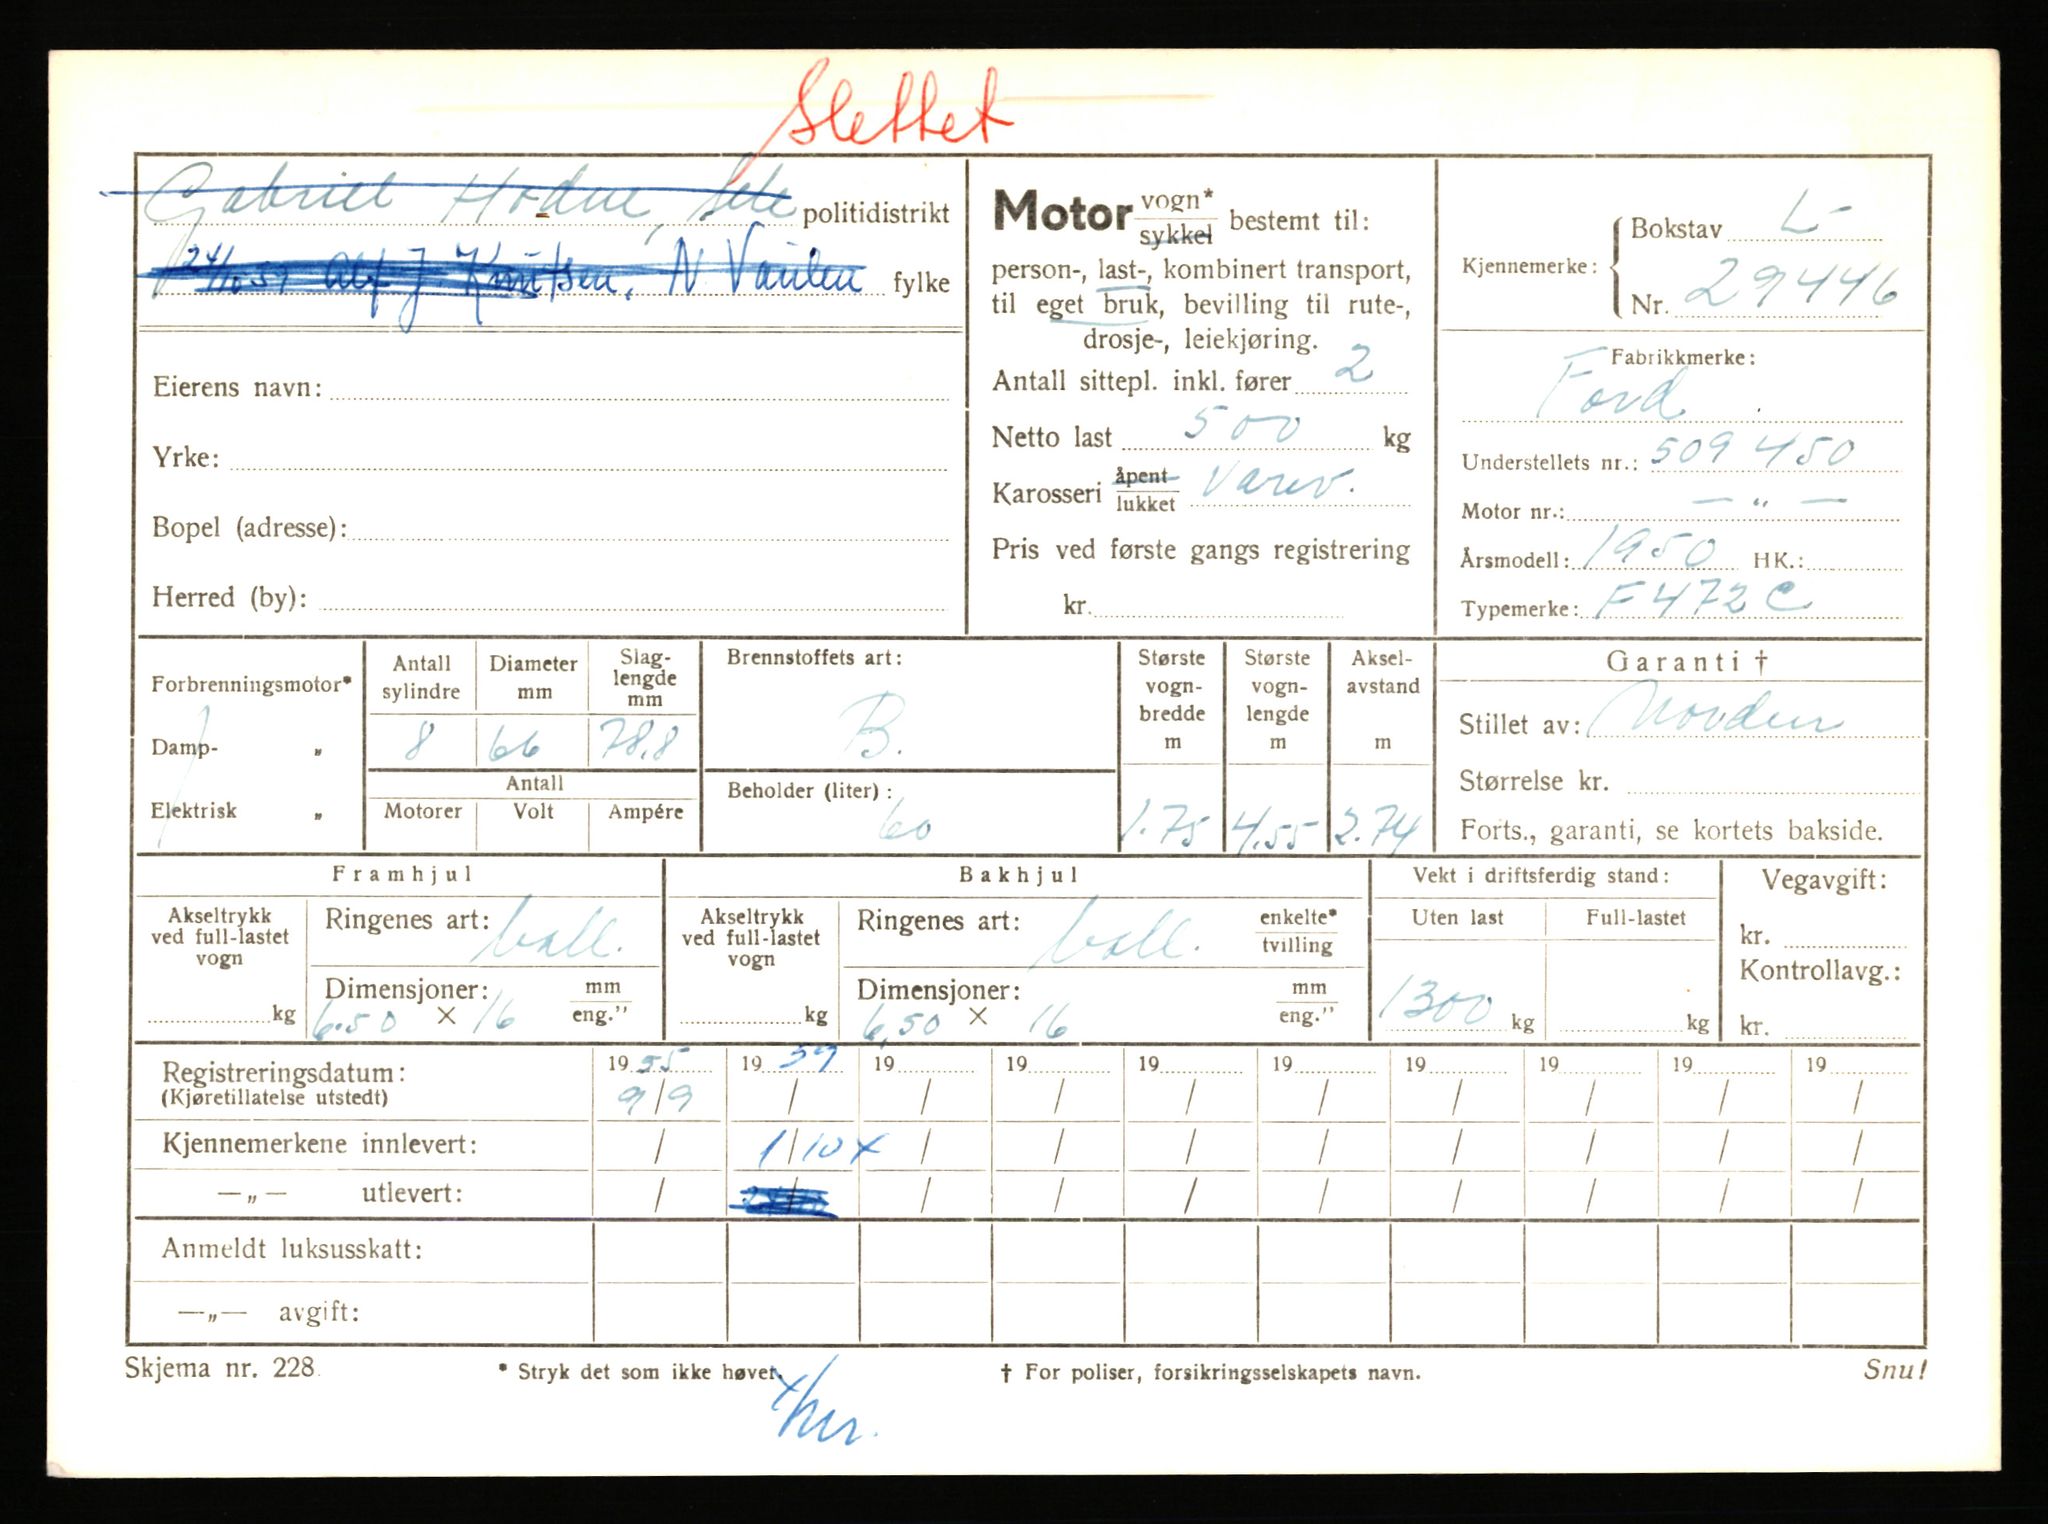 Slettet
Gabriel Hodne, Sele politidistrikt
24/10 59 Alf J Knutsen, N Vaulen fylke
Eierens navn:
Yrke:
Bopel (adresse):
Herred (by):
Motor vogn* sykkel bestemt til:
person-, last-, kombinert transport,
til eget bruk, bevilling til rute-,
drosje-, leiekjøring.
Antall sittepl. inkl. fører 2
Netto last 500 kg
Karosseri åpent lukket Varev.
Pris ved første gangs registrering
kr.
Kjennemerke: Bokstav L-
Nr. 29446
Fabrikkmerke:
Ford
Understellets nr.: 509450
Motor nr.: — " —
Årsmodell: 1950 HK.:
Typemerke: F472C
Forbrenningsmotor*
Damp- „
Elektrisk „
Antall sylindre Diameter mm Slag-lengde mm
8 66 78,8
Antall
Motorer Volt Ampére
Brennstoffets art:
B.
Beholder (liter):
60
Største vogn-bredde m Største vogn-lengde m Aksel-avstand m
1.75 4.55 2.74
Garanti †
Stillet av: Norden
Størrelse kr.
Forts., garanti, se kortets bakside.
Framhjul
Akseltrykk ved full-lastet vogn
kg
Ringenes art: ball.
Dimensjoner: mm eng."
6.50 × 16
Bakhjul
Akseltrykk ved full-lastet vogn
kg
Ringenes art: ball. enkelte* tvilling
Dimensjoner: mm eng."
6,50 × 16
Vekt i driftsferdig stand:
Uten last Full-lastet
1300 kg kg
Vegavgift:
kr.
Kontrollavg.:
kr.
Registreringsdatum: 19 55 19 59 19 19 19 19 19 19 19 19
(Kjøretillatelse utstedt) 9/9 / / / / / / / / /
Kjennemerkene innlevert: / 1/10 x / / / / / / / /
—„— utlevert: / / / / / / / / /
Anmeldt luksusskatt:
—„— avgift:
Skjema nr. 228 * Stryk det som ikke høver. † For poliser, forsikringsselskapets navn. Snu!